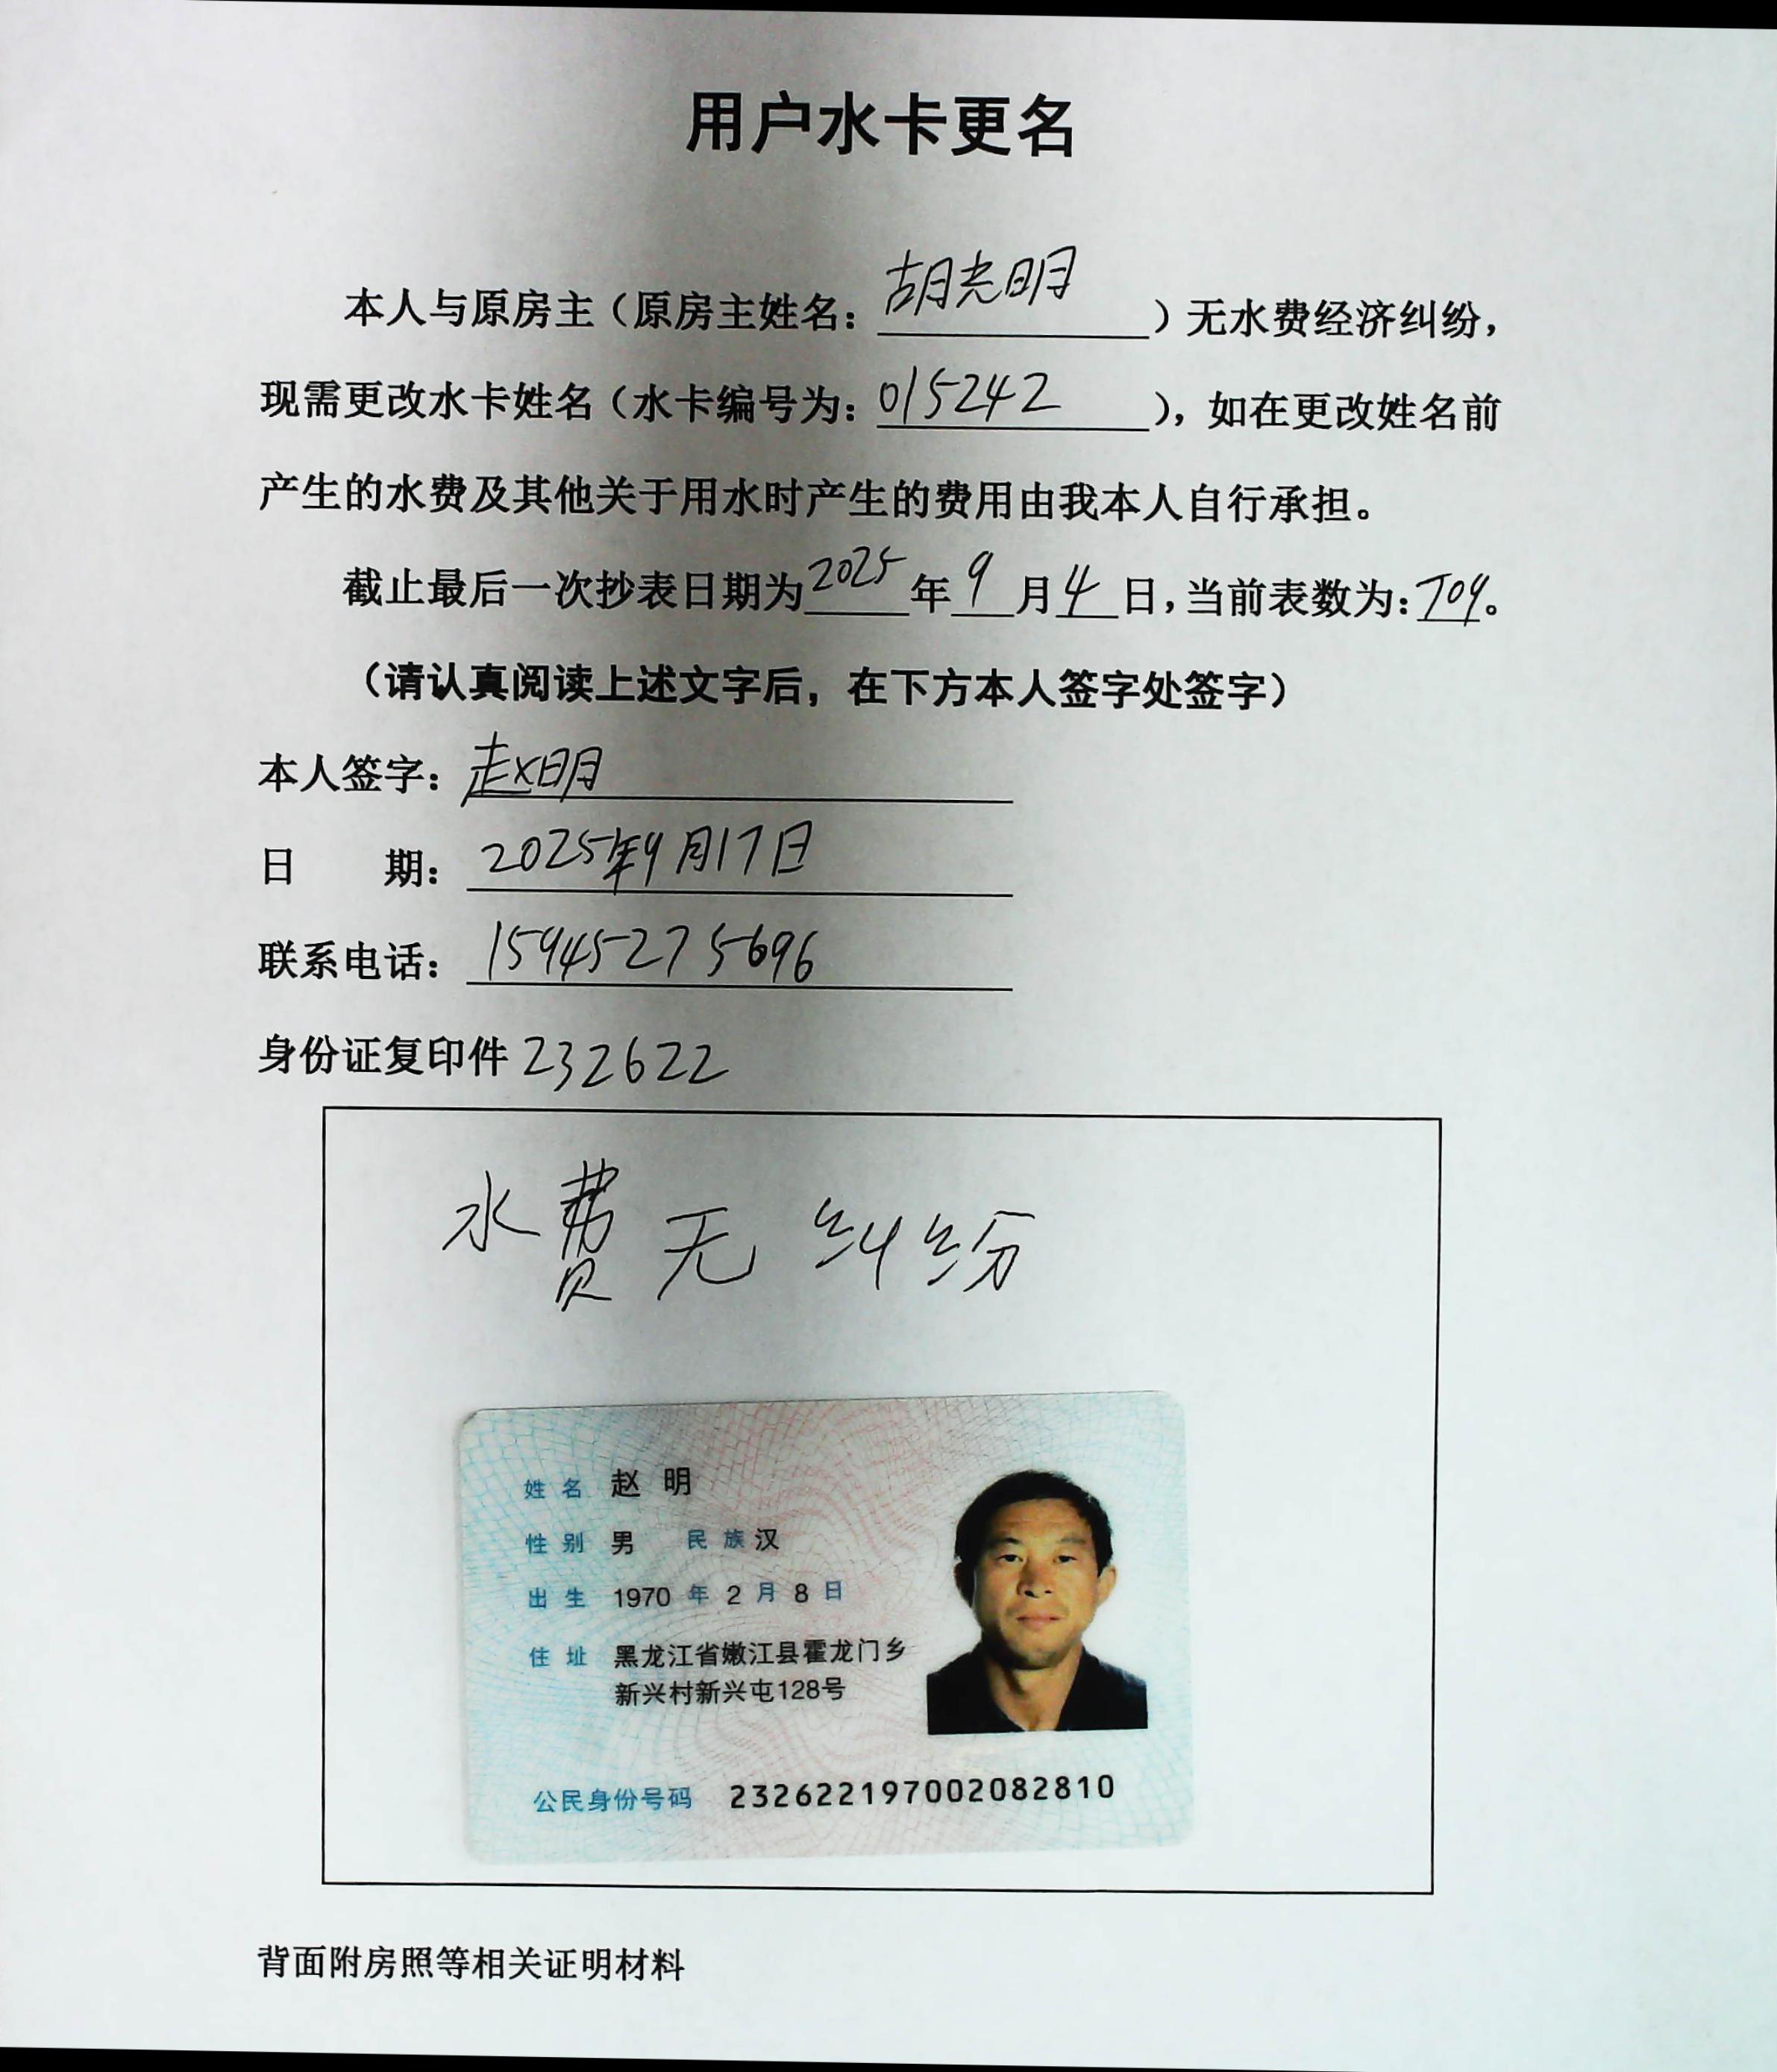 用户水卡更名
本人与原房主（原房主姓名：胡光明）无水费经济纠纷，
现需更改水卡姓名（水卡编号为：015242），如在更改姓名前
产生的水费及其他关于用水时产生的费用由我本人自行承担。
截止最后一次抄表日期为2025年9月4日，当前表数为：709。
（请认真阅读上述文字后，在下方本人签字处签字）
本人签字：赵明
日 期：2025年9月17日
联系电话：15945275696
身份证复印件 232622
水费无纠纷
姓名 赵明
性别 男 民族 汉
出生 1970年2月8日
住址 黑龙江省嫩江县霍龙门乡
新兴村新兴屯128号
公民身份号码 232622197002082810
背面附房照等相关证明材料